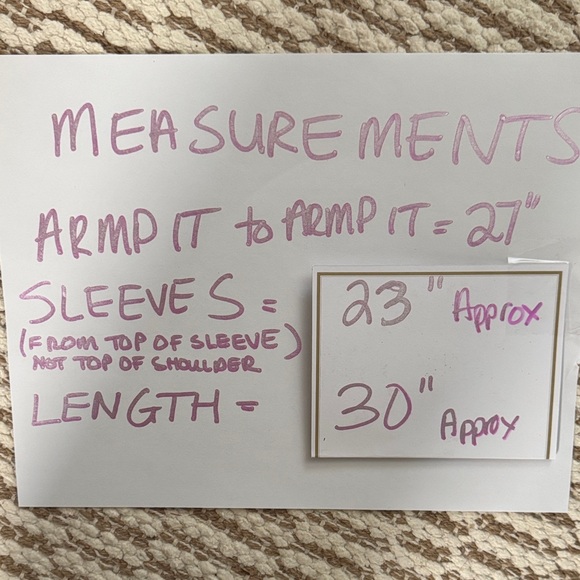 MEASUREMENTS
ARMPIT to ARMPIT = 27"
SLEEVES = 23" Approx
(FROM TOP OF SLEEVE)
NOT TOP OF SHOULDER
LENGTH = 30" Approx